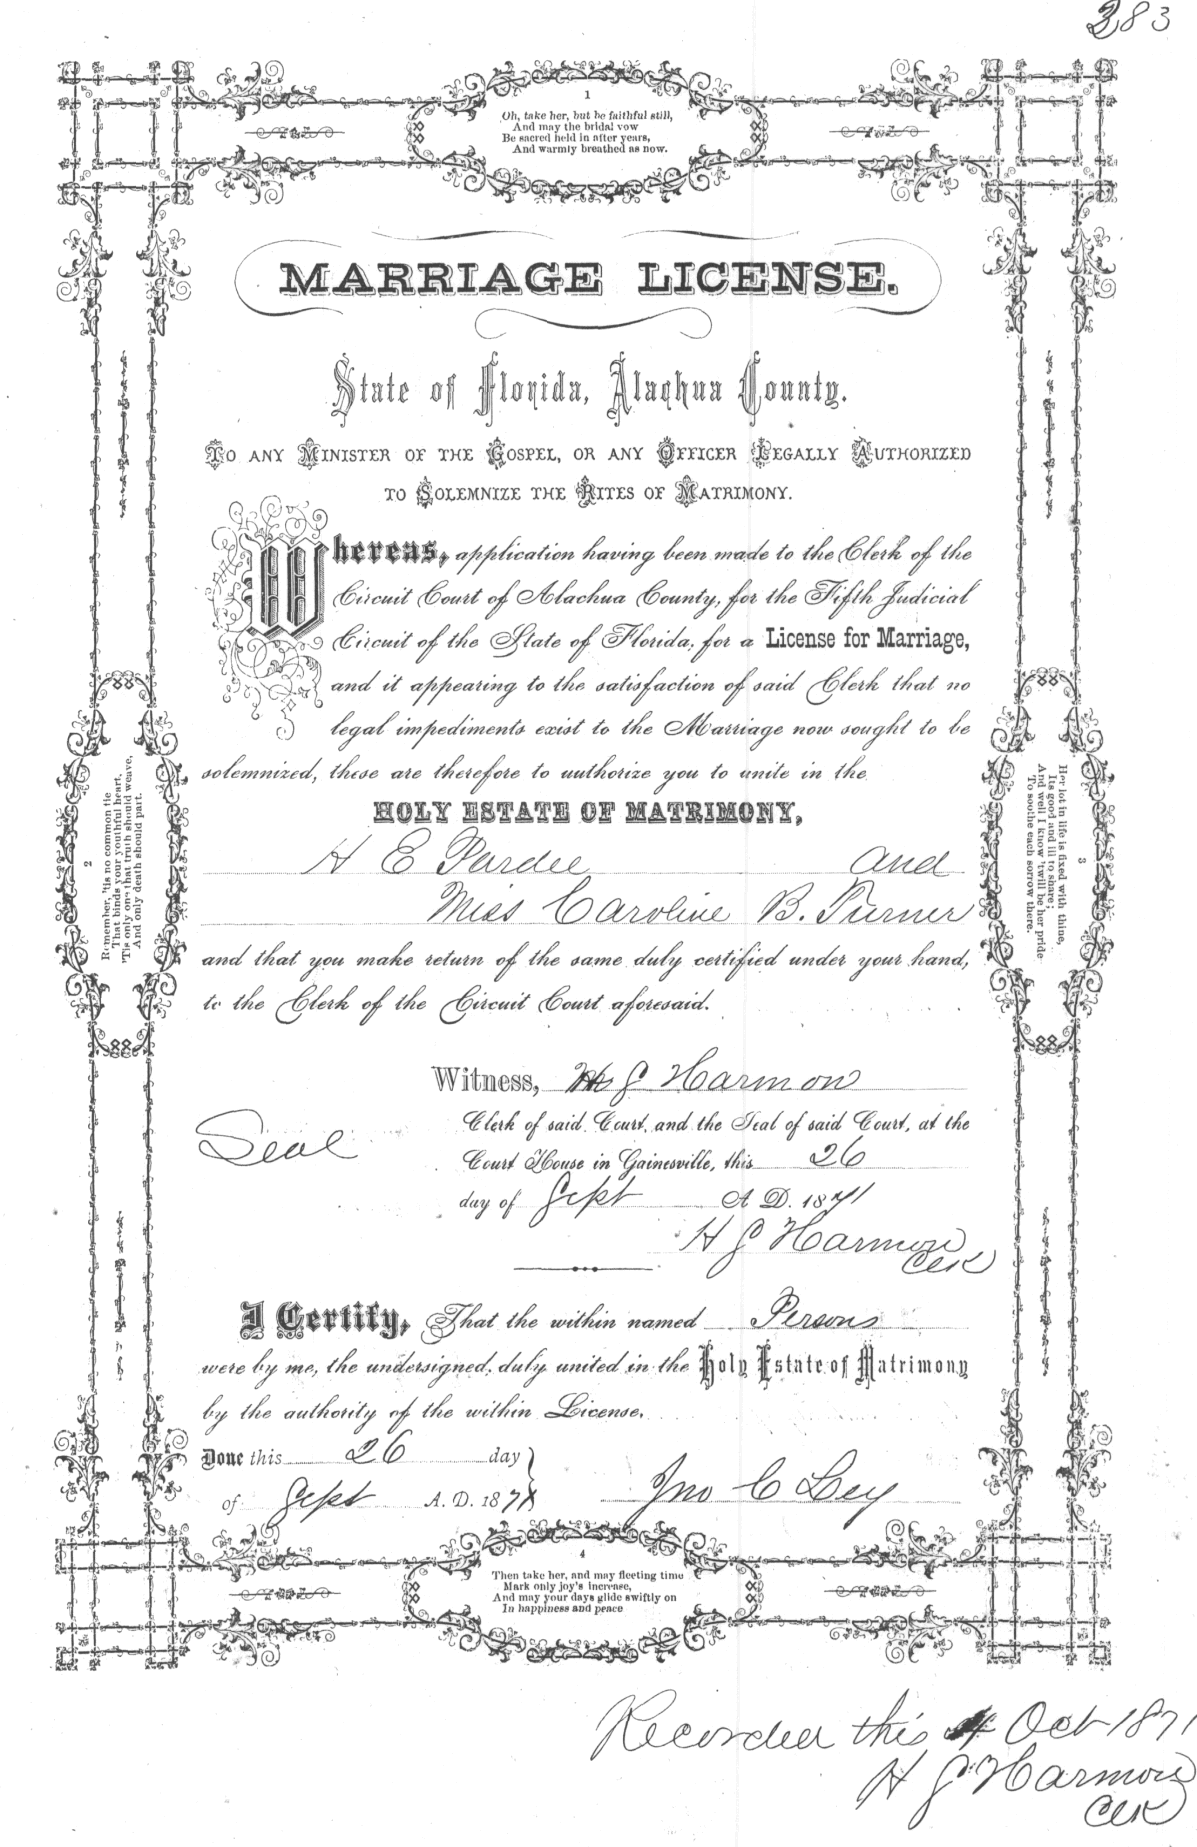 283
1
Oh, take her, but be faithful still,
And may the bridal vow
Be sacred held in after years,
And warmly breathed as now.
MARRIAGE LICENSE.
State of Florida, Alachua County.
TO ANY MINISTER OF THE GOSPEL, OR ANY OFFICER LEGALLY AUTHORIZED
TO SOLEMNIZE THE RITES OF MATRIMONY.
Whereas, application having been made to the Clerk of the
Circuit Court of Alachua County, for the Fifth Judicial
Circuit of the State of Florida, for a License for Marriage,
and it appearing to the satisfaction of said Clerk that no
legal impediments exist to the Marriage now sought to be
solemnized, these are therefore to authorize you to unite in the
HOLY ESTATE OF MATRIMONY,
H E Pardee and
Miss Caroline B. Turner
and that you make return of the same duly certified under your hand,
to the Clerk of the Circuit Court aforesaid.
2
Remember, 'tis no common tie
That binds your youthful heart,
'Tis only one that truth should weave,
And only death should part.
3
Her lot in life is fixed with thine,
Its good and ill to share;
And well I know 'twill be her pride
To soothe each sorrow there.
Witness, H G Harmon
Clerk of said Court, and the Seal of said Court, at the
Seal
Court House in Gainesville, this 26
day of Sept A. D. 1871
H G Harmon
Clk
I Certify, That the within named Persons
were by me, the undersigned, duly united in the Holy Estate of Matrimony
by the authority of the within License.
Done this 26 day
of Sept A. D. 1871
Jno C Ley
4
Then take her, and may fleeting time
Mark only joy's increase,
And may your days glide swiftly on
In happiness and peace
Recorded this 4 Oct 1871
H G Harmon
Clk